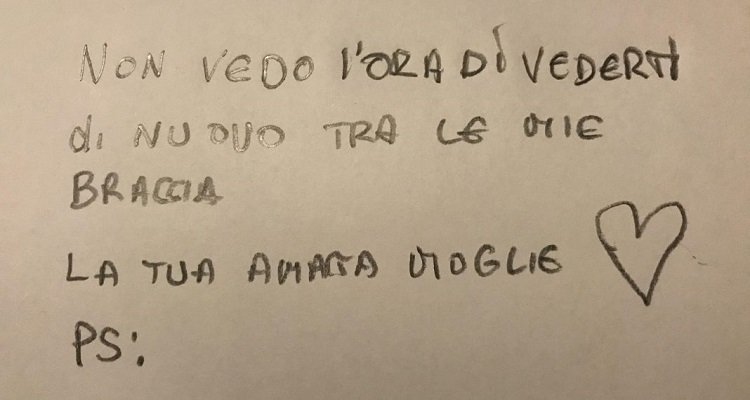 NON VEDO L'ORA DÌ VEDERTI
di NUOVO TRA LE MIE
BRACCIA
LA TUA AMATA MOGLIE
PS: